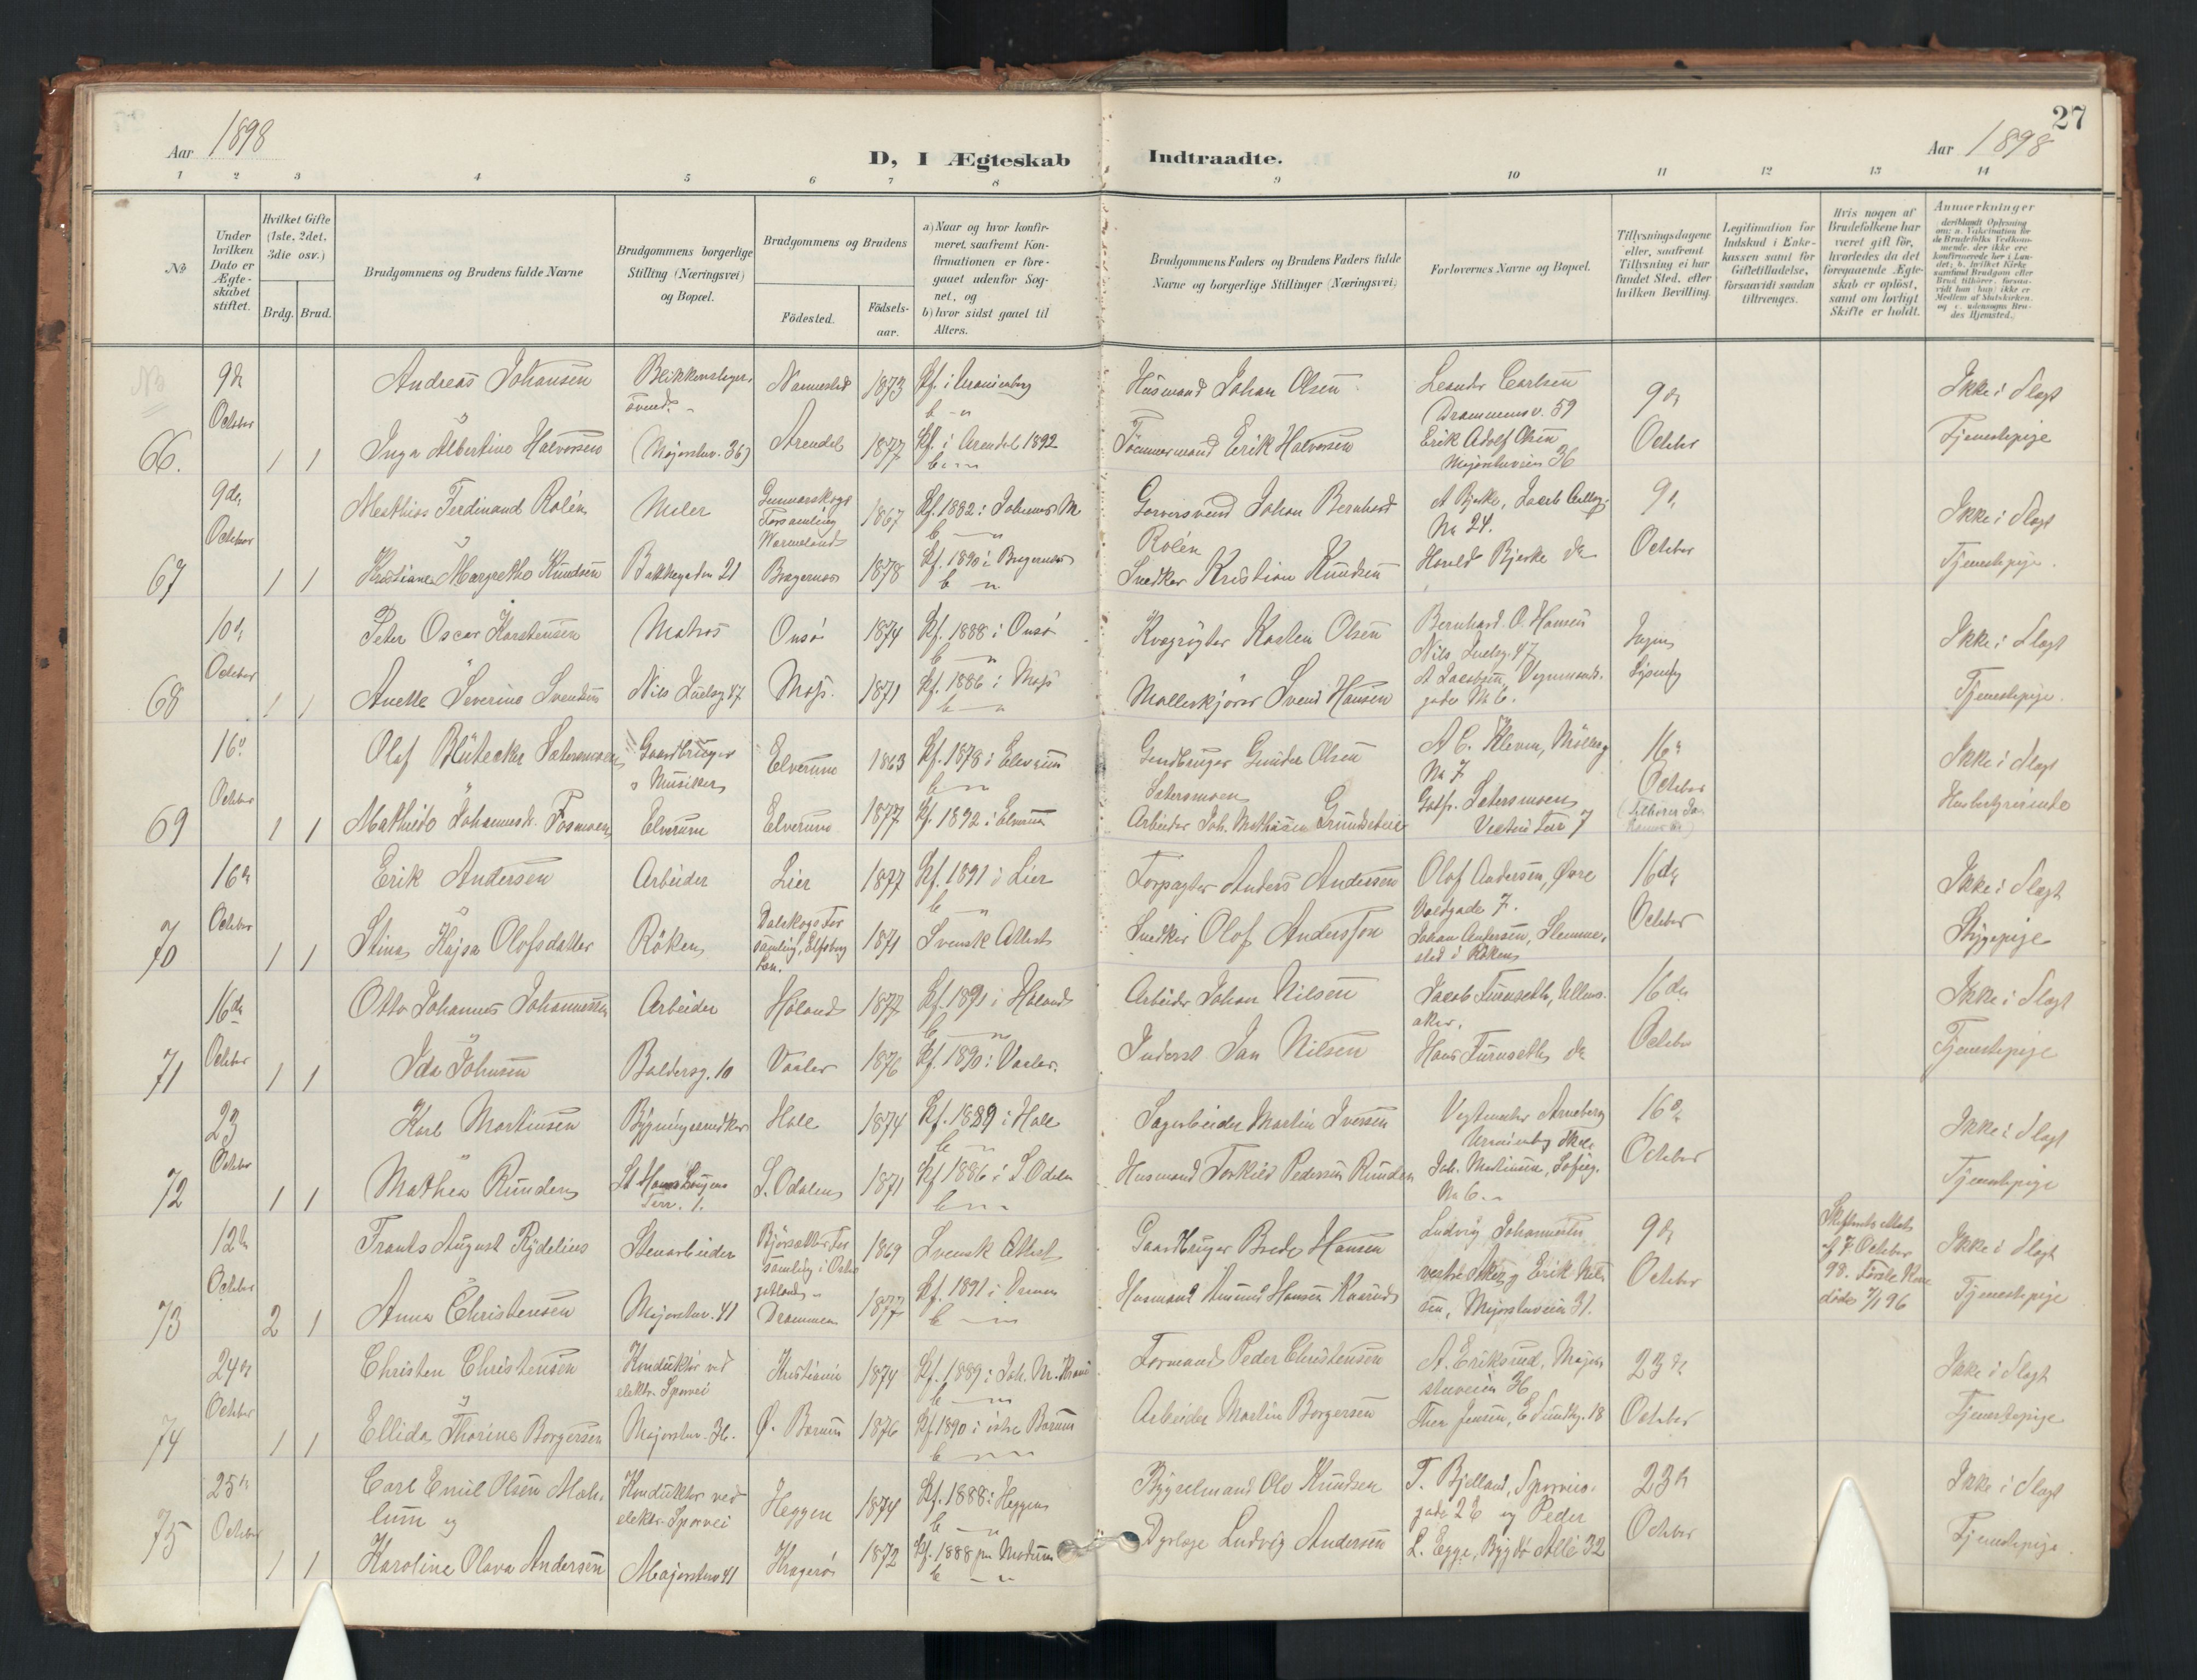 27
Aar 1898
D, I Ægteskab Indtraadte.
Aar 1898
1 2 3 4 5 6 7 8 9 10 11 12 13 14
No
Under hvilken Dato er Ægteskabet stiftet.
Hvilket Gifte (1ste, 2det, 3die osv.)
Brdg. Brud.
Brudgommens og Brudens fulde Navne
Brudgommens borgerlige Stilling (Næringsvei) og Bopæl.
Brudgommens og Brudens
Födested.
Födselsaar.
a) Naar og hvor konfirmeret, saafremt Konfirmationen er foregaaet udenfor Sognet, og
b) hvor sidst gaaet til Alters.
Brudgommens Faders og Brudens Faders fulde Navne og borgerlige Stillinger (Næringsvei)
Forlovernes Navne og Bopæl.
Tillysningsdagene eller, saafremt Tillysning ei har fundet Sted, efter hvilken Bevilling.
Legitimation for Indskud i Enkekassen samt for Giftetilladelse, forsaavidt saadan tiltrænges.
Hvis nogen af Brudefolkene har været gift för, hvorledes da det foregaaende Ægteskab er oplöst, samt om lovligt Skifte er holdt.
Anmærkninger
66.
9de October
Andreas Johansen
Blikkenslager
1873
Husmand Johan Olsen
Leander Carlsen
Drammensv. 59
9de October
Ikke i Slægt
1 1
Inga Albertine Halvorsen
(Majorstuv. 36)
Arendal
1877
Kf. i Arendal 1892
Tømmermand Erik Halvorsen
Erik Adolf Olsen
Majorstuveien 36
Tjenestepige
67
9de October
Mathias Ferdinand Rolén
Maler
Gunnarskogs Forsamling Wärmeland
1867
Kf. 1882 i Johannes M
Garversvend Johan Bernhard Rolén
A Bjerke, Jacob
No 24.
9de October
Ikke i Slægt
1 1
Kristiane Margrethe Knudsen
Bakkegaden 21
Bragernæs
1878
Kf. 1890 i Bragernæs
Snedker Kristian Knudsen
Harald Bjerke do
Tjenestepige.
68
10de October
Peter Oscar Karstensen
Matros
Onsö
1874
Kf. 1888 i Onsö
Karsten Olsen
Bernhard O. Hansen
Nils Juelsg. 47
Ingen Lysning
Ikke i Slægt
1 1
Anette Severine Svendsen
Nils Juelsg. 47
Moss.
1871
Kf. 1886 i Moss
Møllerkjører Svend Hansen
A Jacobsen,
gade No 6.
Tjenestepige.
69
16de October
Olaf Blütecker Sætersmoen
Gaardbruger
o Musiker
Elverum
1863
Kf. 1878 i Elverum
Gaardbruger Gunder Olsen Sætersmoen
A C. Kleven, Mölleg
No 7
16de October
Ikke i Slægt
1 1
Mathilde Johannesd. Fosmoen
Elverum
Elverum
1877
Kf. 1892 i Elverum
Arbeider Joh. Mathisen
Gotf. Sætersmoen
Vestre Terr 7
Husbestyrerinde
70
16de October
Erik Andersen
Arbeider
Lier
1877
Kf. 1891 i Lier
Forpagter Anders Andersen
Olaf Andersen, Øvre
Voldgade 7.
16de October
Ikke i Slægt
1 1
Stina Kajsa Olofsdatter
Röken
Dalskogs Forsamling, Elfsborg Län.
1871
Svensk Attest
Snedker Olof Andersson
Johan Andersen, Slemmestad i Röken
Sypige
71
16de October
Otto Johannes Johannessen
Arbeider
Höland
1877
Kf. 1891 i Höland
Arbeider Johan Nilsen
Jacob Furuseth, Ullensaker.
16de October
Ikke i Slægt
1 1
Ida Johnsen
Baldersg. 10
Vaaler
1876
Kf. 1890 i Vaaler.
Inderst Jan Nilsen
Hans Furuseth do
Tjenestepige
72
23 October
Karl Martinsen
Bygningssnedker
Hole
1874
Kf. 1889 i Hole
Sagarbeider Martin Iversen
Vagtmester Arneberg
Uranienborg Skole
16de October
Ikke i Slægt
1 1
Mathea Runden
St Hanshaugens Terr. 1.
S. Odalen
1871
Kf 1886 i S Odalen
Husmand Torkild Pedersen Runden
Joh. Martinsen, Sofieg.
No 6.
Tjenestepige
73
12te October
Frants August Rydelius
Stenarbeider
Björsätter Forsamling i Östergötland
1869
Svensk Attest
Gaardbruger Brede Hansen
Ludvig Johannesen
vestre Aker og Erik Nilssen, Majorstuveien 31.
9de October
Skifteattest af 7 October 98. Første Kone døde 7/1 96
Ikke i Slægt
2 1
Anna Christensen
Majorstuv. 41
Drammen
1877
Kf. 1891 i Drammen
Husmand Amund Hansen
Tjenestepige
74
24de October
Christen Christensen
Konduktör ved elektr. Sporvei
Kristiania
1874
Kf. 1889 i Joh. M. Krania
Formand Peder Christensen
A. Eriksrud, Majorstuveien 36
23de October
Ikke i Slægt
1 1
Ellida Thorine Borgersen
Majorstuv. 36.
Ö. Bærum
1876
Kf. 1890 i östre Bærum
Arbeider Martin Borgersen
Thor Jensen, E Sundtsg. 18
Tjenestepige
75
25de October
Carl Emil Olsen Mælum og
Konduktör ved elektr. Sporvei
Heggen
1874
Kf. 1888 i Heggen
Bygselmand Ole Knudsen
T. Bjelland, Sporveisgade 26 og Peder
23de October
Ikke i Slægt
1 1
Karoline Olava Andersen
Majorstuv 41
Kragerö
1872
Kf. 1888 paa Modum
Dyrlæge Ludvig Andersen
L. Egge, Bygdö Allé 32
Tjenestepige.